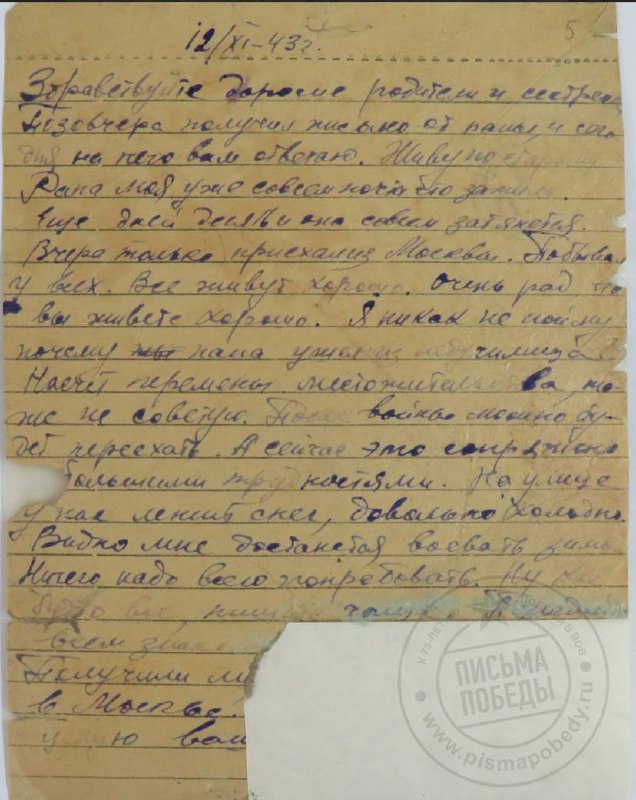 5
12/XI-43г.
Здравствуйте дорогие родители и сестрен
Позовчера получил письмо от папы, и сего
дня на него вам отвечаю. Живу по старому
Рана моя уже совсем почти что зажила.
Еще дней десять и она совсем затянется.
Вчера только приехал из Москвы. Побывал
у всех. Все живут хорошо. Очень рад, что
вы живете хорошо. Я никак не пойму
почему папа из училища
Насчет перемены местожительства, то
же не советую. После войны можно бу-
дет переехать. А сейчас это сопряжено
большими трудностями. На улице
у нас лежит снег, довольно холодно.
Видно мне достанется воевать зимой
Ничего надо всего попробовать. Ну как
будто все, пишите
всем
Получили ли
в Москве.
вам
К 75-ЛЕТ В ВОВ
ПИСЬМА
ПОБЕДЫ
www.pismapobedy.ru